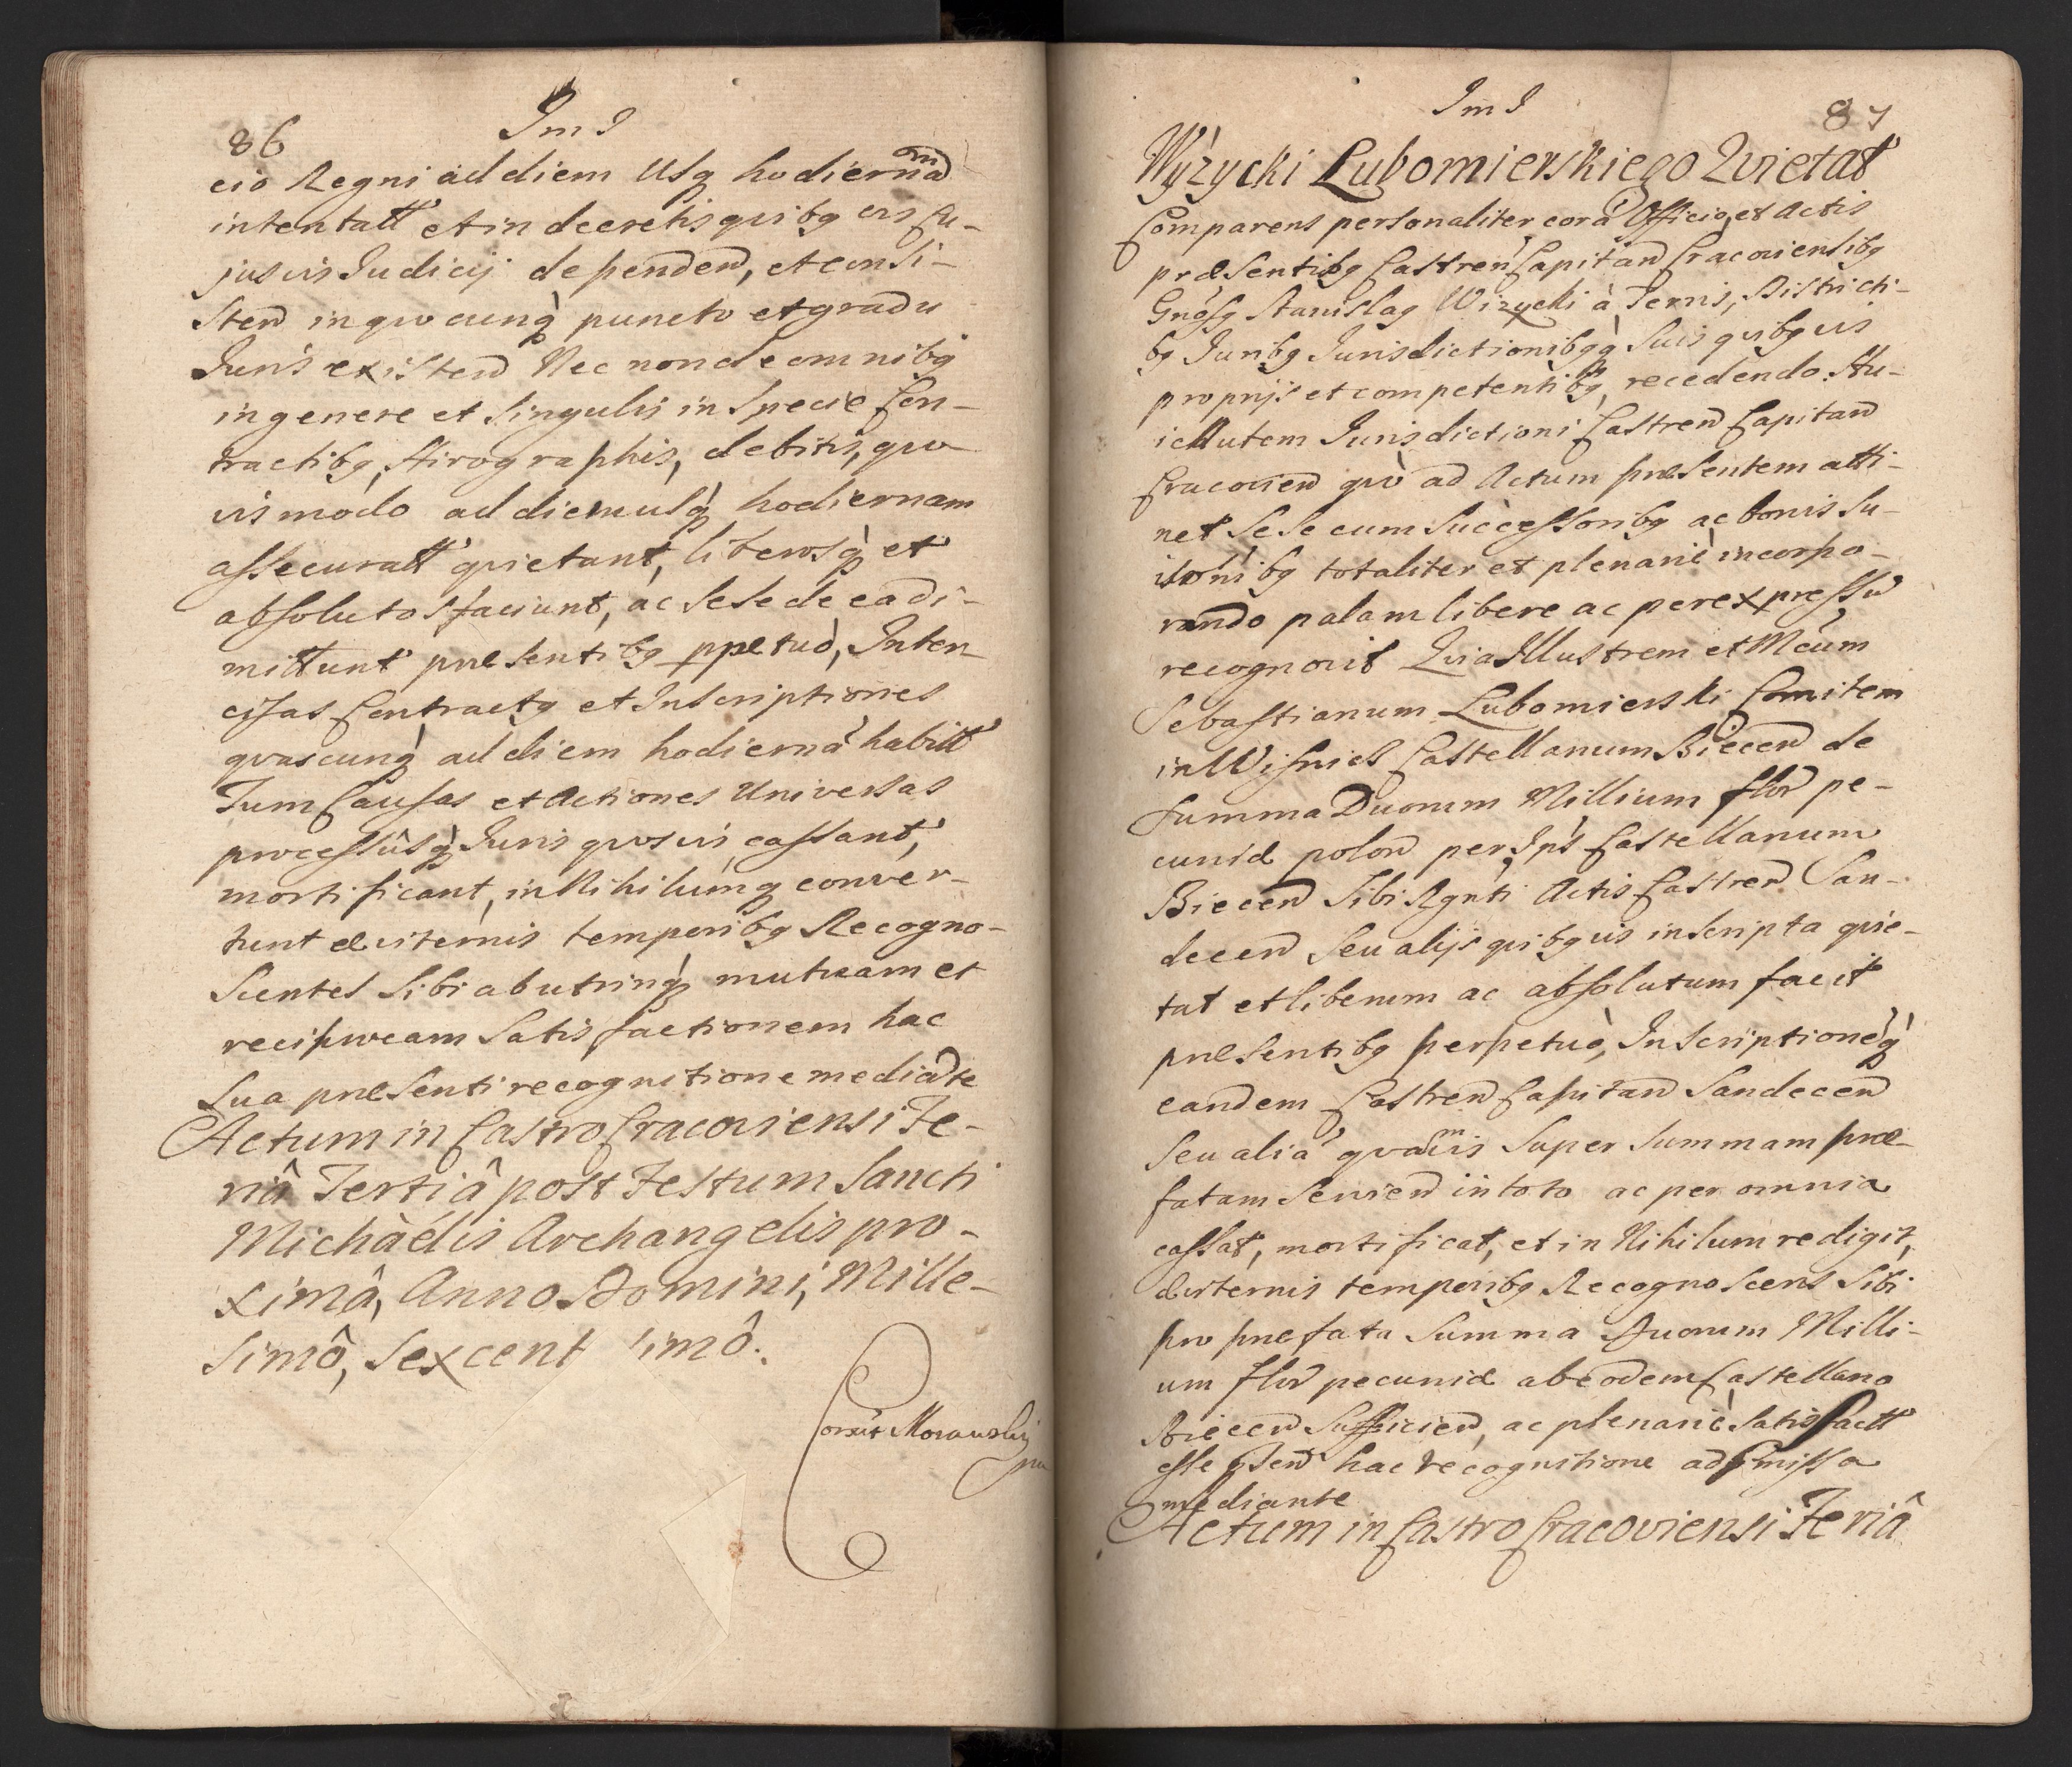 86
Im I
cio Regni ad diem Usq hodiernam
intentatt et in decretis qvibg vis cu-
jusvis Judicij dependend, et consi-
stend in qvocunq puncto et gradu
Juris existend Nec non de omnibg
in genere et Singulis in Specie Con-
tractibg, Hirographis, debitis, qvo
vis modo ad diem usq hodiernam
assecuratt qvietant, liberosq et
absolutos faciunt, ac Sese de ea di-
mittunt præsentibg ppetuò, Inter
cisas Contractg et Inscriptiones
qvascunq ad diem hodierná habitt
Tum Causas et Actiones Universas
processûsq Juris qvosvis, cassant,
mortificant, in Nihilumq conver-
tunt æviternis temporibg Recogno-
Scentes Sibi ab utrinq mutuam et
reciprocam Satisfactionem hac
Sua præsenti recognitione mediate
Actum in Castro Cracoviensi Fe-
riâ Tertiâ post Festum Sancti
Michàélis Archangelis pro-
ximâ, Anno Domini, Mille-
simô, Sexcent simô.
Morawski
mp
Im I
87
Wyżycki Lubomierskiego Qvietat
Comparens personaliter corá Officio, et Actis
præsentibg Castren Capitan Cracoviensibg
Gnosg Stanislag Wizycki à Terris, Districti-
bg Juribg Jurisdictionibgq Suis qvibg vis
proprijs et competentibg, recedendo. Hu-
ic Autem Jurisdictioni Castrend Capitand
Cracoviend qvò ad Actum præsentem atti-
net Sese cum Successoribg ac bonis Su-
is omibg totaliter et plenariè incorpo-
rando palam libere ac per expressu
recognovit Qvia Illustrem et Mcum
Sebastianum Lubomierski Comitem
in Wisnicz Castellanum Biecend de
Summa Duorum Millium flor pe-
cuniæ polond per Ips Castellanum
Biecend Sibi Rgnti Actis Castrend San-
decend Seu alijs qvibg vis inscripta qvie-
tat et liberum ac absolutum facit
præsentibg perpetuò, Inscriptionéq
eandem Castrend Capitand Sandecend
Seu aliá qvamvis Super Summam præ-
fatam Serviend in toto ac per omnia
cassat, mortificat, et in Nihilum redigit,
æviternis temporibg Recognoscens Sibi
pro præfata Summa Duorum Milli-
um flor pecuniæ ab eodem Castellano
Biecend Sufficiend, ac plenariè Satisfactt
esse hac recognitione ad missa
mediante
Actum in Castro Cracoviensi Feriâ